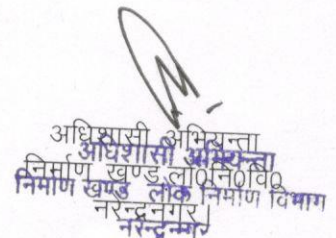 अधिशासी अभियन्ता
अधिशासी अभियन्ता
निर्माण खण्ड लो०नि०वि०
निर्माण खण्ड लोक निर्माण विभाग
नरेन्द्रनगर।
नरेन्द्रनगर